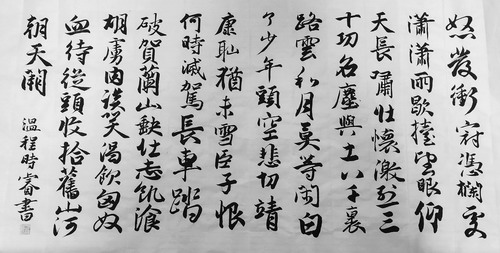 怒髮衝冠憑欄處
瀟瀟雨歇擡望眼仰
天長嘯壯懷激烈三
十功名塵與土八千裏
路雲和月莫等閑白
了少年頭空悲切靖
康恥猶未雪臣子恨
何時滅駕長車踏
破賀蘭山缺壯志飢飡
胡虜肉談笑渴飲匈奴
血待從頭收拾舊山河
朝天闕
溫程時睿書